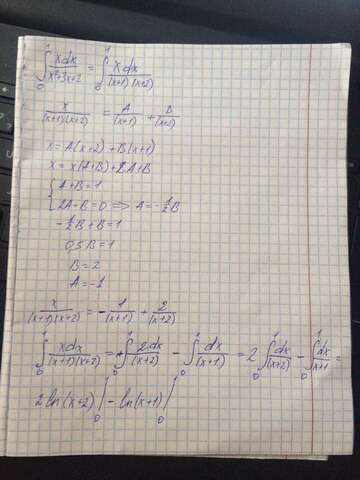 ∫₀¹ xdx/(x²+3x+2) = ∫₀¹ xdx/((x+1)(x+2))
x/((x+1)(x+2)) = A/(x+1) + B/(x+2)
x = A(x+2)+B(x+1)
x = x(A+B)+2A+B
{ A+B=1
{ 2A+B=0 ⟹ A=-½B
-½B+B=1
0,5B=1
B=2
A=-1
x/((x+1)(x+2)) = -1/(x+1) + 2/(x+2)
∫₀¹ xdx/((x+1)(x+2)) = +∫₀¹ 2dx/(x+2) - ∫₀¹ dx/(x+1) = 2∫₀¹ dx/(x+2) - ∫₀¹ dx/(x+1) =
2ln(x+2)|₀¹ - ln(x+1)|₀¹